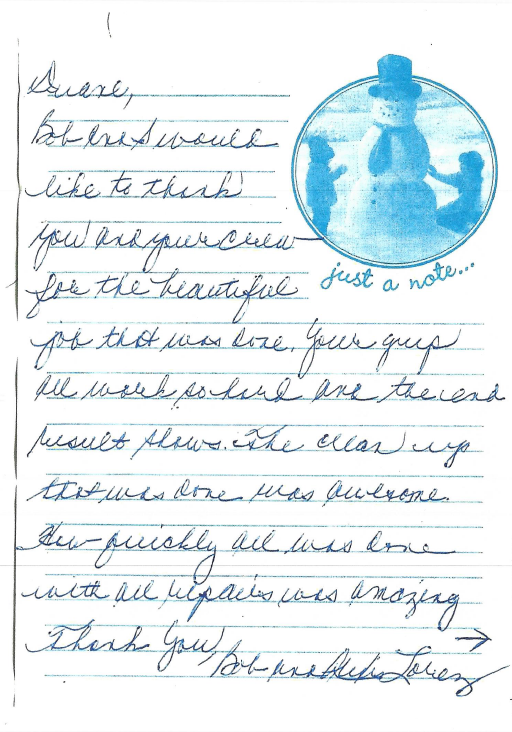 Duane,
Bob and I would
like to thank
you and your crew
for the beautiful
just a note...
job that was done. Your guys
all work so hard and the end
result shows. The clean up
that was done was awesome.
How quickly all was done
with all repairs was amazing
Thank You,
Bob and